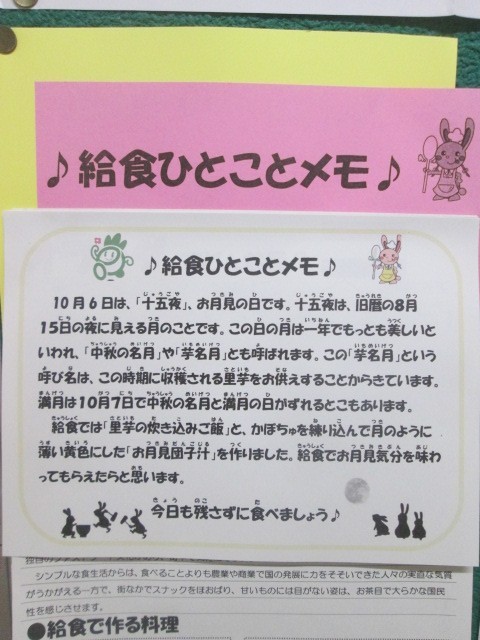 ♪給食ひとことメモ♪
♪給食ひとことメモ♪
10月6日は、「十五夜」、お月見の日です。十五夜は、旧暦の8月
15日の夜に見える月のことです。この日の月は一年でもっとも美しいと
いわれ、「中秋の名月」や「芋名月」とも呼ばれます。この「芋名月」という
呼び名は、この時期に収穫される里芋をお供えすることからきています。
満月は10月7日で中秋の名月と満月の日がずれるとこもあります。
給食では「里芋の炊き込みご飯」と、かぼちゅを練り込んで月のように
薄い黄色にした「お月見団子汁」を作りました。給食でお月見気分を味わ
ってもらえたらと思います。
今日も残さずに食べましょう♪
シンプルな食生活からは、食べることよりも農業や商業で国の発展に力をそそいできた人々の実直な気質
がうかがえる一方で、街なかでスナックをほおばり、甘いものには目がない姿は、お茶目で大らかな国民
性を感じさせます。
●給食で作る料理